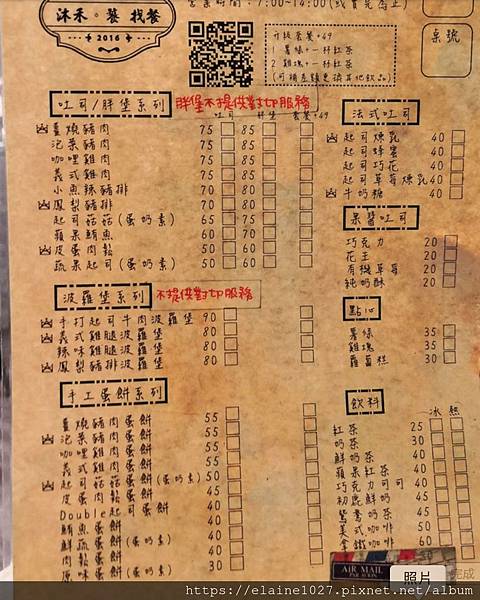 沐禾。餐 找餐
2016
營業時間:7:00~14:00(或賣完為止)
升級套餐+49
1 薯條+一杯紅茶
2 雞塊+一杯紅茶
(可補差額更換其他飲品)
桌號
吐司/胖堡系列
胖堡不提供對切服務
吐司 胖堡 套餐+49
薑燒豬肉 75 85
泡菜豬肉 75 85
咖哩雞肉 75 85
義式雞肉 75 85
小魚辣豬排 70 80
鳳梨豬排 70 80
起司菇菇(蛋奶素) 65 75
蘋果鮪魚 60 70
皮蛋肉鬆 50 60
蔬果起司(蛋奶素) 50 60
波羅堡系列
不提供對切服務
手打起司牛肉波羅堡 90
義式雞腿波羅堡 80
辣味雞腿波羅堡 80
鳳梨豬排波羅堡 80
手工蛋餅系列
薑燒豬肉蛋餅 55
泡菜豬肉蛋餅 55
咖哩雞肉蛋餅 55
義式雞肉蛋餅 55
起司菇菇蛋餅(蛋奶素) 50
皮蛋肉鬆蛋餅 45
Double起司蛋餅 45
鮪魚蛋餅 40
鮮蔬蛋餅(蛋奶素) 40
肉鬆蛋餅 40
原味蛋餅(蛋奶素) 30
法式吐司
起司煉乳 40
起司蜂蜜 40
起司巧花 40
起司草莓煉乳 40
牛奶糖 40
果醬吐司
巧克力 20
花生 20
有機草莓 20
純奶酥 20
點心
薯條 35
雞塊 35
蘿蔔糕 30
飲料
冰 熱
紅茶 25
奶茶 30
鮮奶茶 40
蘋果紅茶 40
巧克力可可 40
初鹿鮮奶 45
鴛鴦奶茶 45
美式咖啡 50
拿鐵咖啡 60
AIR MAIL
PAR AVION
照片
完成
https://elaine1027.pixnet.net/album